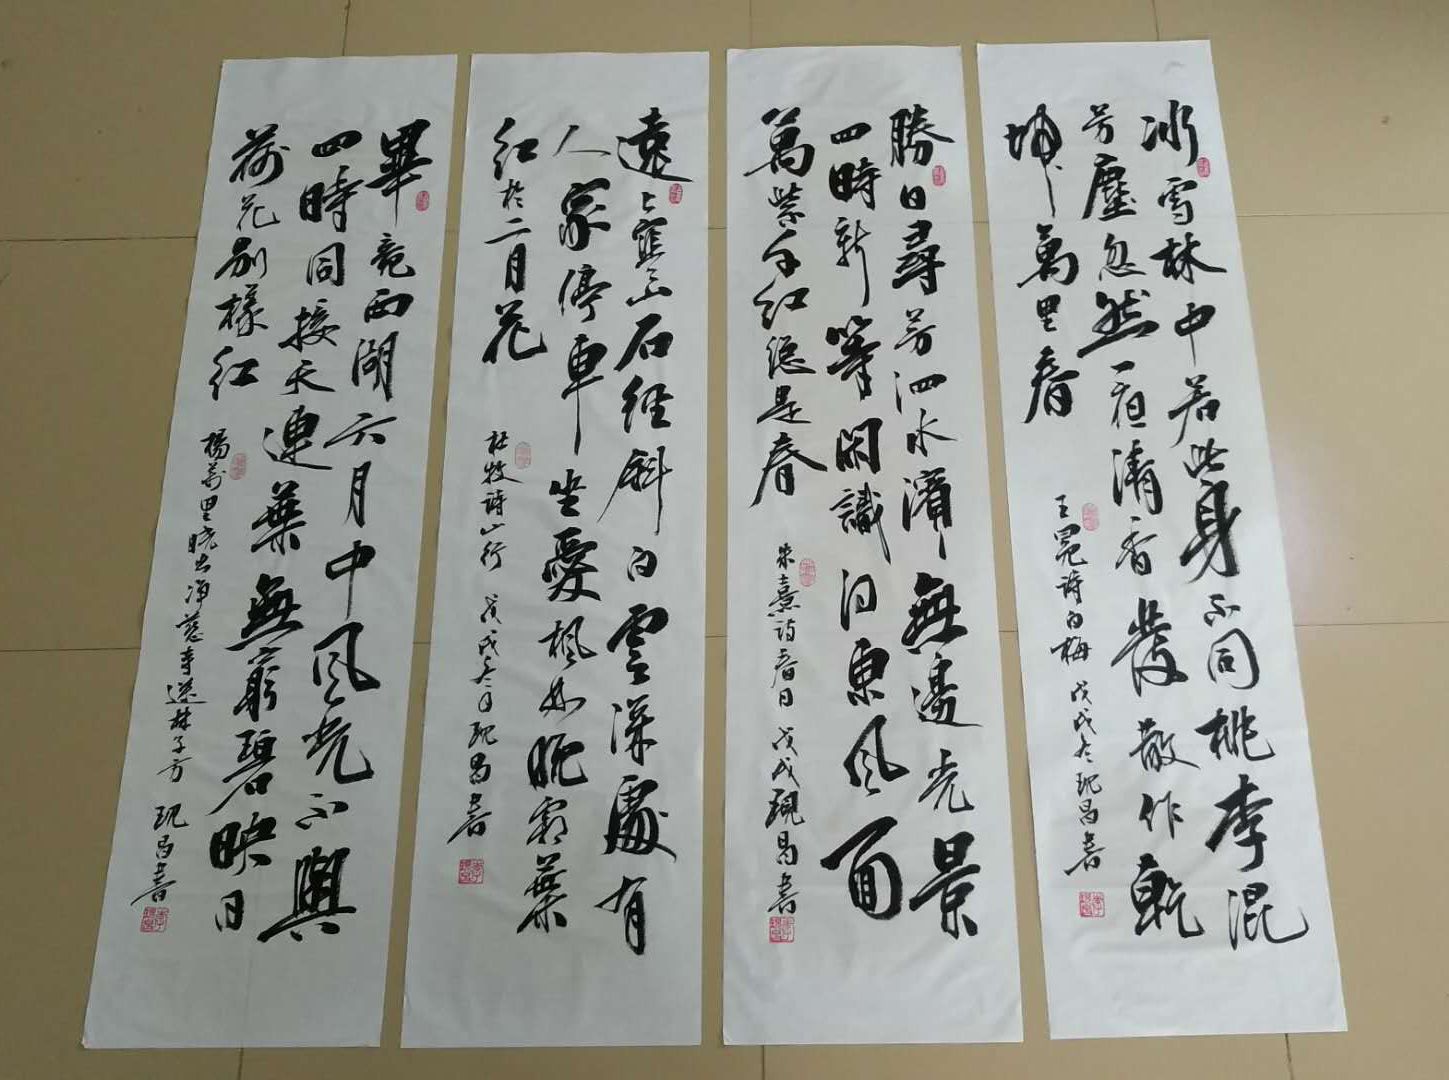 冰雪林中著此身不同桃李混
芳塵忽然一夜清香發散作乾
坤萬里春
王冕詩白梅 戊戌冬現昌書
勝日尋芳泗水濱無邊光景
四時新等閒識得東風面
萬紫千紅總是春
朱熹詩春日 戊戌現昌書
遠上寒山石徑斜白雲深處有
人家停車坐愛楓林晚霜葉
紅於二月花
杜牧詩山行 戊戌冬月現昌書
畢竟西湖六月中風光不與
四時同接天連葉無窮碧映日
荷花別樣紅
楊萬里曉出淨慈寺送林子方 現昌書